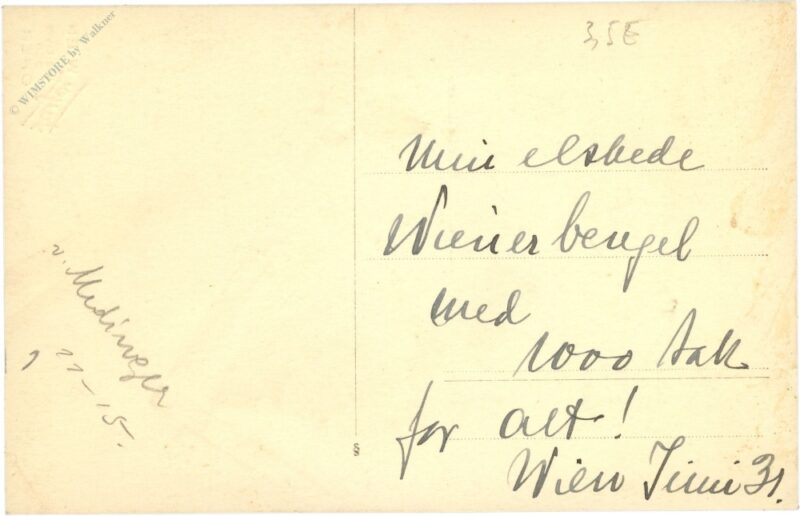 © WIMSTORE by Walkner
3,5E
Min elskede
Wienerbengel
med
1000 tak
for alt!
Wien Juni 31.
v. Medinger
22-15.
§